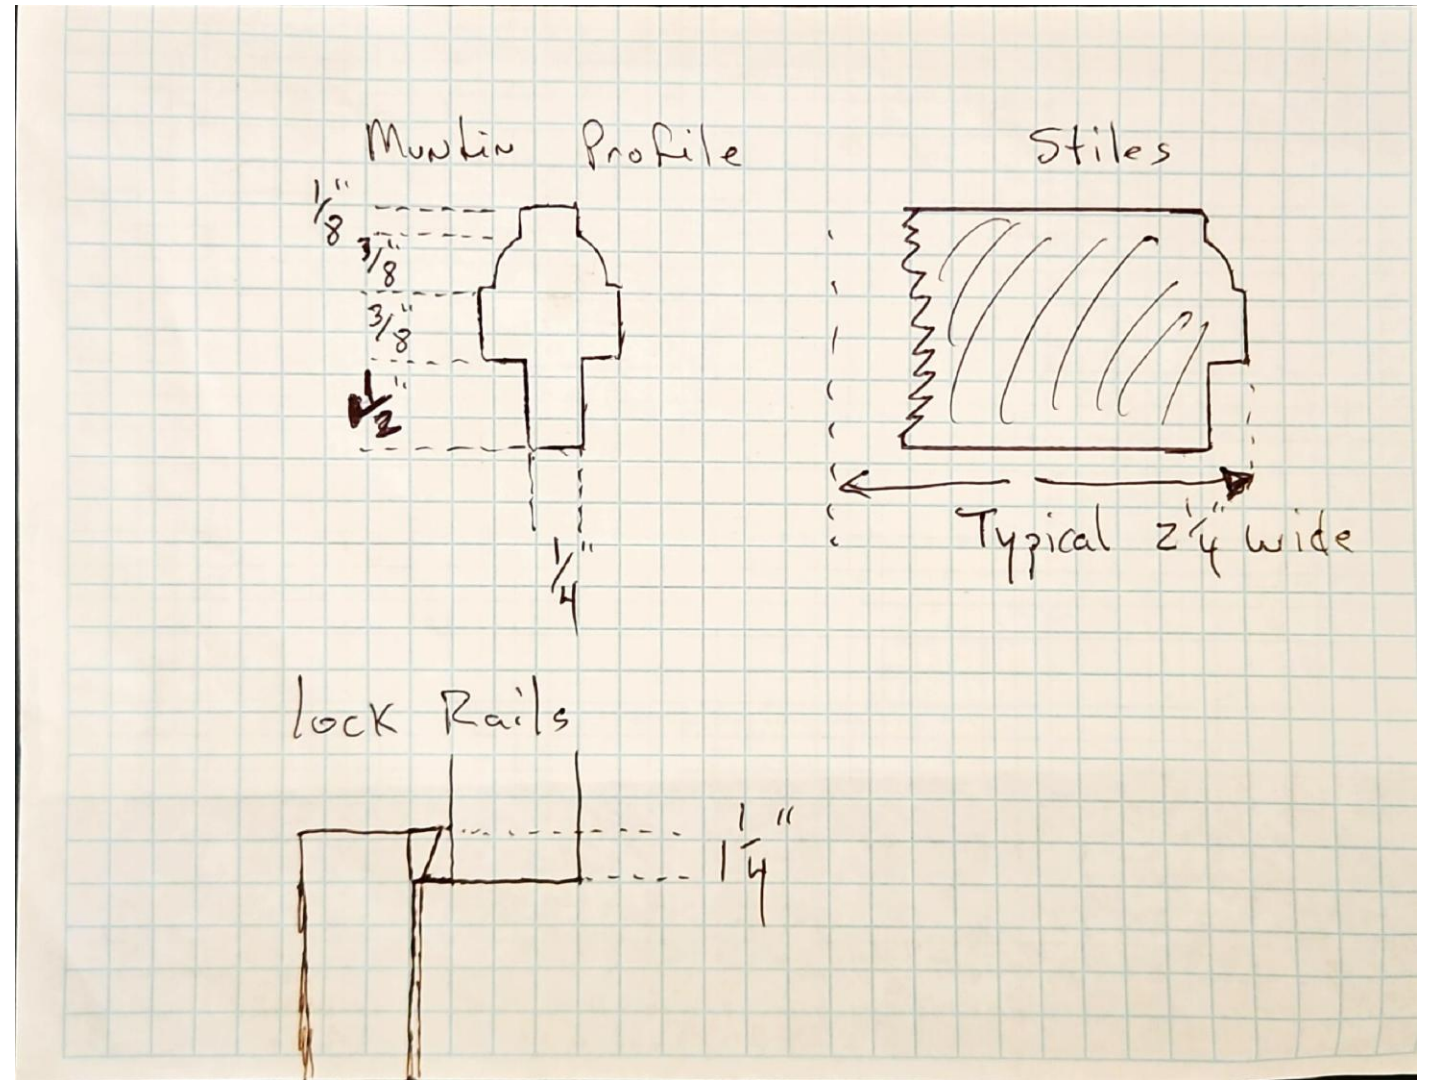 Muntin Profile
Stiles
1/8"
3/8"
3/8"
1/2"
1/4"
Typical 2 1/4" wide
lock Rails
1 1/4"